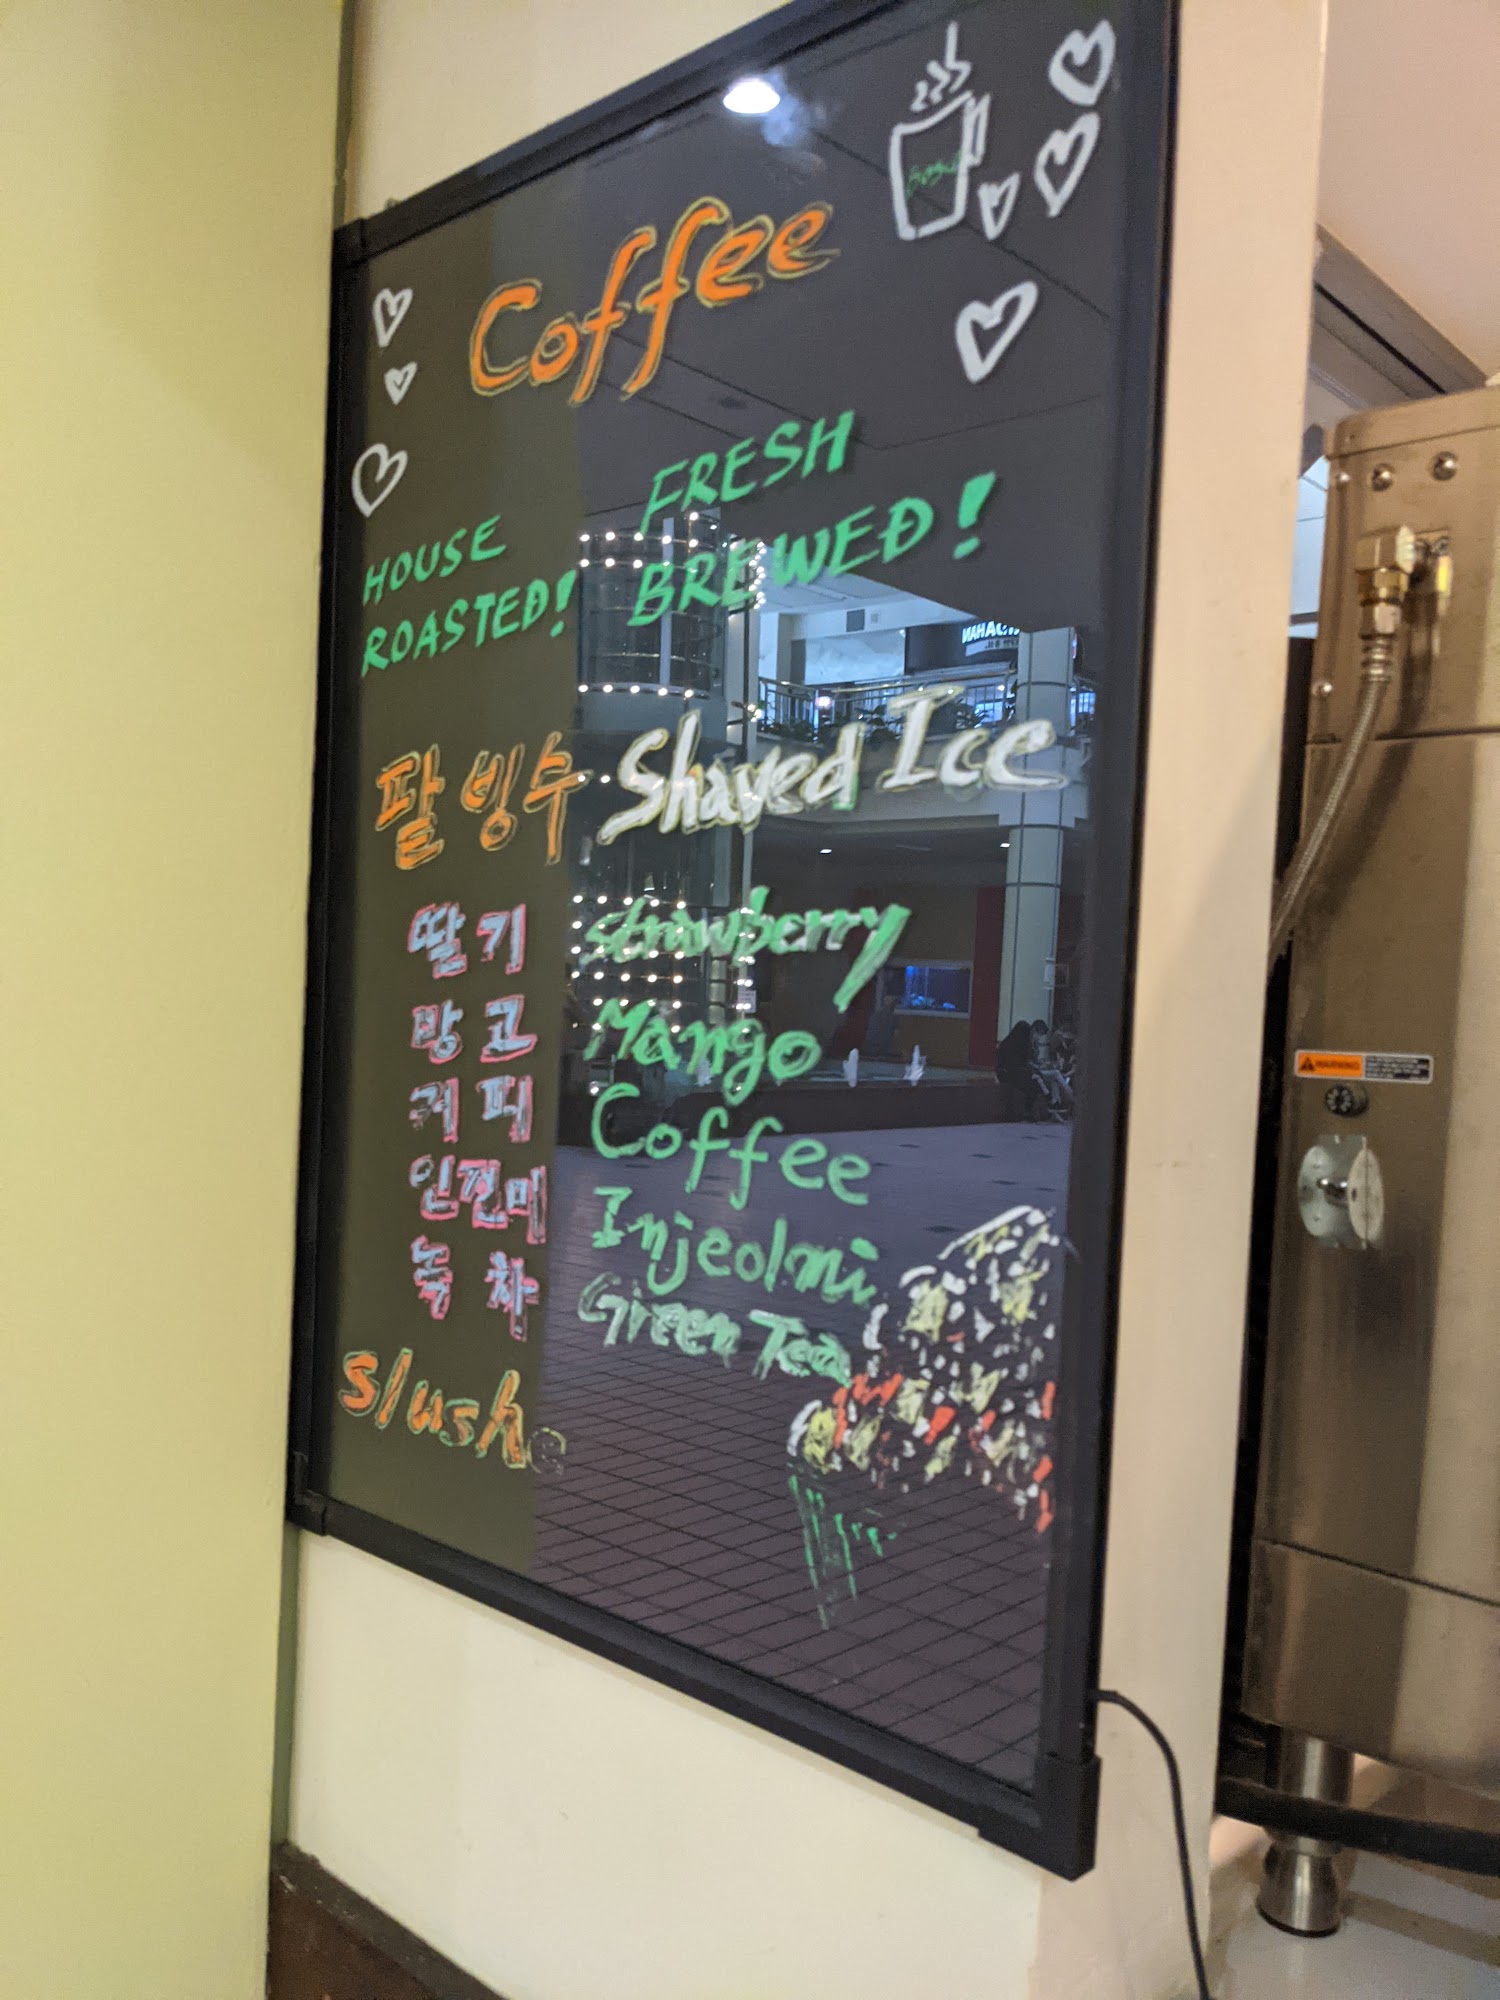 Coffee
HOUSE
ROASTED!
FRESH
BREWED!
팥빙수 Shaved Ice
딸기 Strawberry
망고 Mango
커피 Coffee
인절미 Injeolmi
녹차 Green Tea
Slushe
WARNING